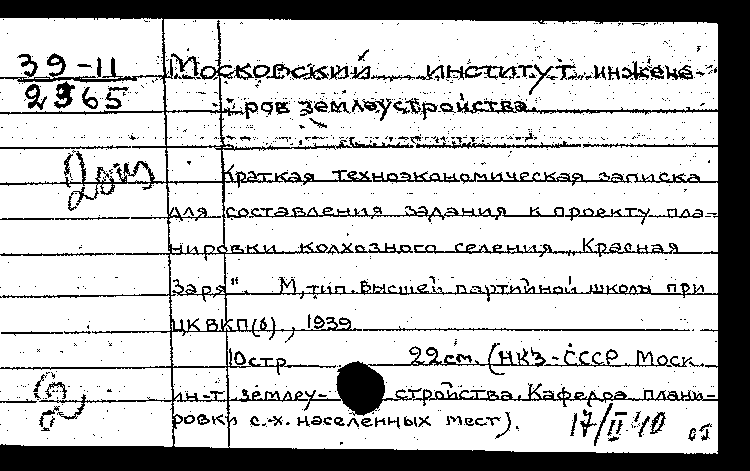 39-11
2365
Московский институт инжене-
ров землеустройства.
Краткая техноэкономическая записка
для составления задания к проекту пла-
нировки колхозного селения „Красная
Заря". М, тип. Высшей партийной школы при
ЦК ВКП(б)., 1939
10 стр. 22 см. (НКЗ-СССР. Моск.
ин-т землеу- стройства. Кафедра плани-
ровки с.-х. населенных мест).
17/II 40